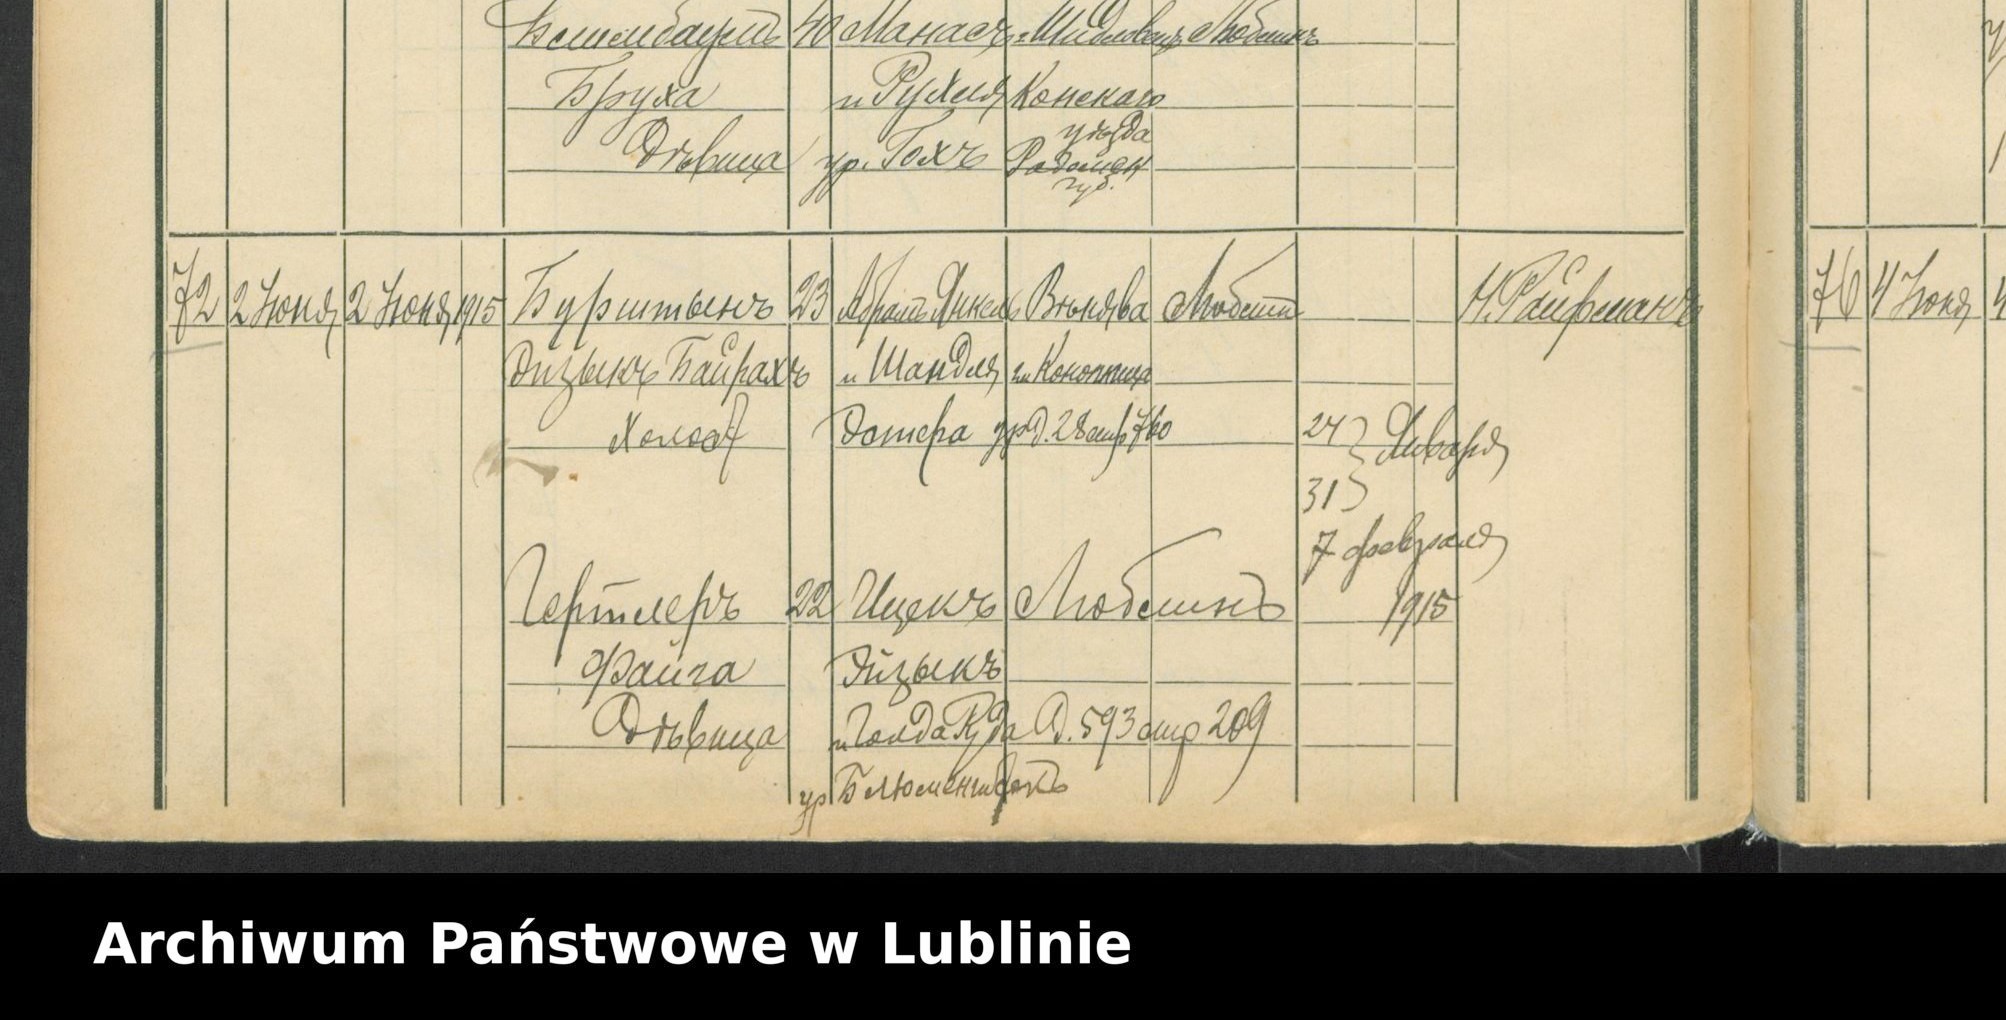 40 Манасъ г. Шидловецъ Люблинъ
Бруха и Рухля Конскаго
уѣзда
Дѣвица ур. Гохъ Радомск
губ.
72 2 Іюня 2 Іюня 1915 Бурштынъ 23 Абрамъ Янкель Любл Н. Райфманъ 76 4 Іюня 4
Айзыкъ Байрахъ и Шандля гм Конопница
Холост ур д. 28 стр 760 24 Января
31
7 февраля
Гертлеръ 22 Ицекъ Люблинъ 1915
Файга Айзыкъ
Дѣвица и Голда Руда Д. 593 стр 209
ур
Archiwum Państwowe w Lublinie